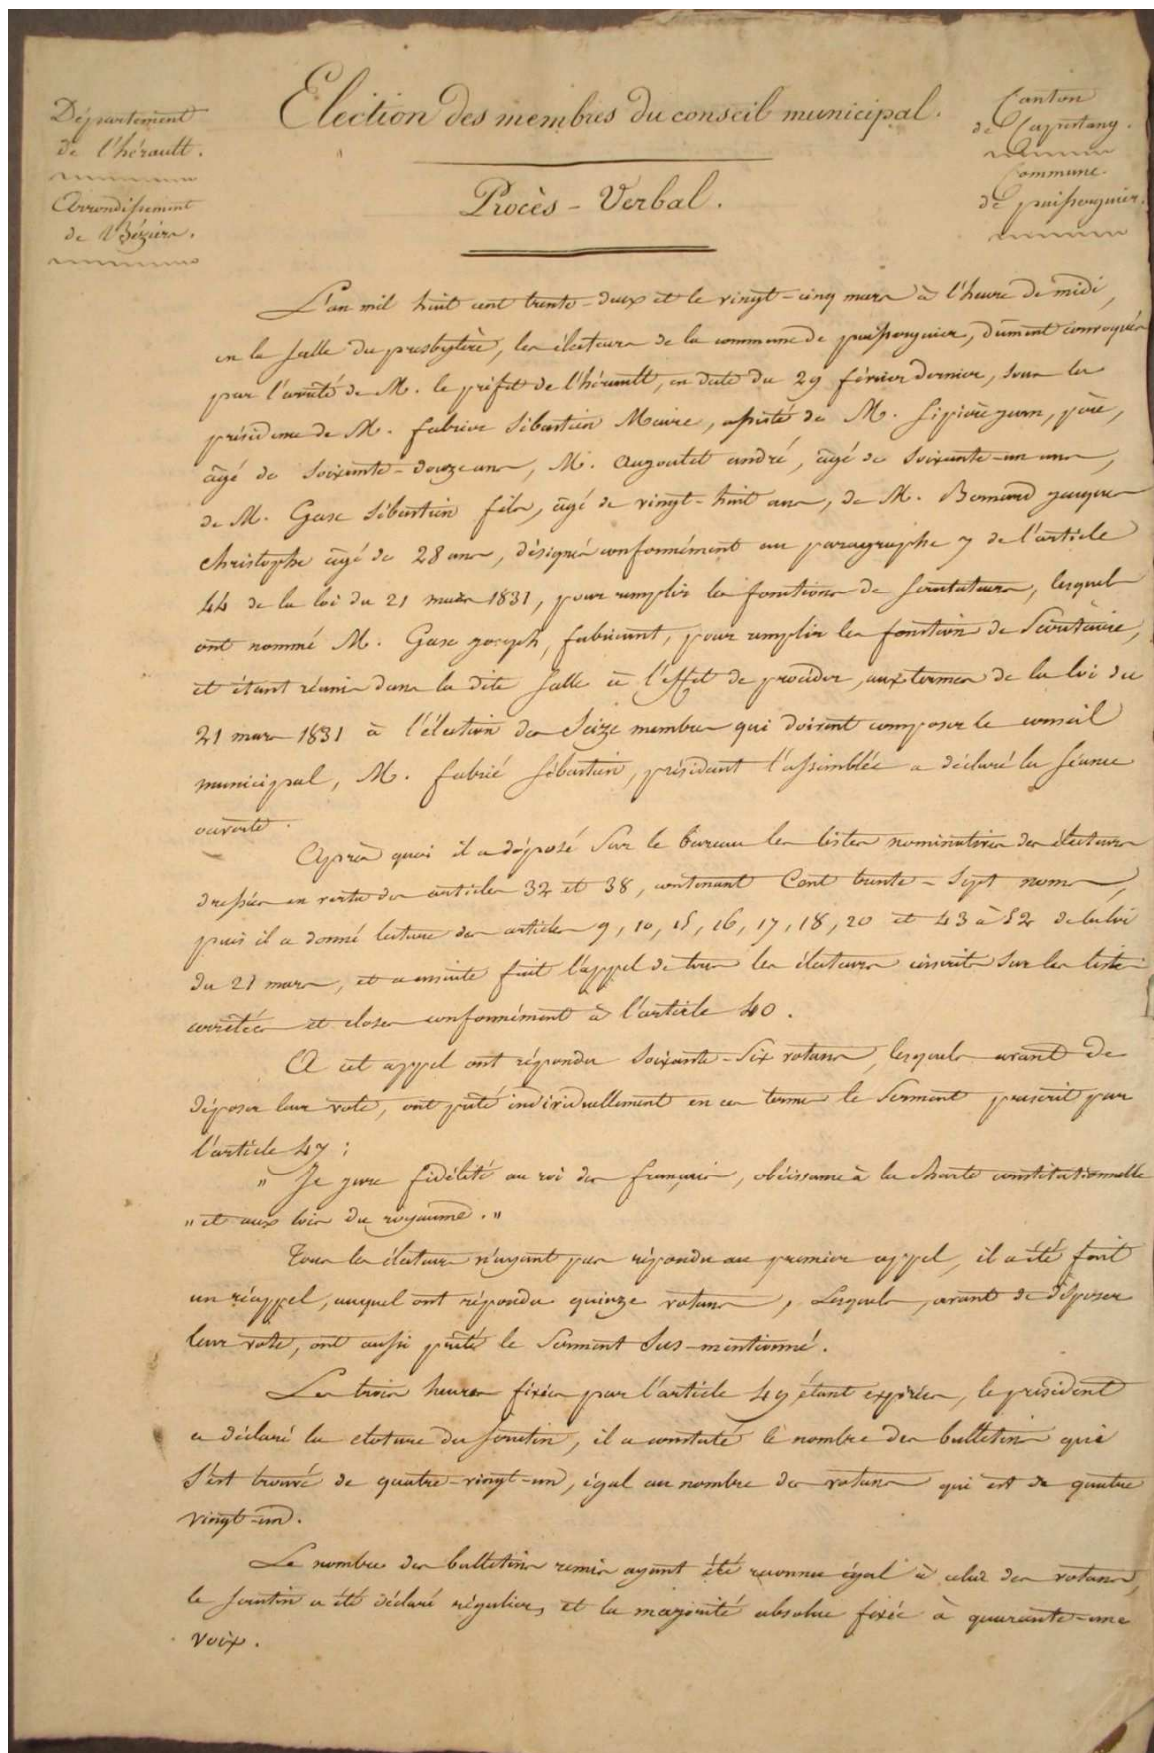 Election des membres du conseil municipal.
Département
de l'hérault.
Arrondissement
de Béziers.
Canton
de Capestang.
Commune
de puisserguier.
Procès-Verbal.
L'an mil huit cent trente-deux et le vingt-cinq mars à l'heure de midi,
en la salle du presbytère, les électeurs de la commune de puisserguier, dûment convoqués
par l'arrêté de M. le préfet de l'hérault, en date du 29 février dernier, sous la
présidence de M. fabrier Sébastien Maire, assisté de M. Sipière jean, père,
âgé de soixante-douze ans, M. Augoulet andré, âgé de soixante-un ans,
de M. Gase Sébastien fils, âgé de vingt-huit ans, de M. Bernard jacques
christophe âgé de 28 ans, désignés conformément au paragraphe 7 de l'article
44 de la loi du 21 mars 1831, pour remplir les fonctions de scrutateurs, lesquels
ont nommé M. Gase joseph, fabricant, pour remplir les fonctions de Secrétaire,
et étant réunis dans la dite salle à l'effet de procéder, aux termes de la loi du
21 mars 1831 à l'élection des Seize membres qui doivent composer le conseil
municipal, M. fabrié Sébastien, présidant l'assemblée a déclaré la séance
ouverte.
Après quoi il a déposé sur le bureau les listes nominatives des électeurs
dressées en vertu des articles 32 et 38, contenant Cent trente-sept noms,
puis il a donné lecture des articles 9, 10, 15, 16, 17, 18, 20 et 43 à 52 de la loi
du 21 mars, et a ensuite fait l'appel de tous les électeurs inscrits sur les listes
arrêtées et closes conformément à l'article 40.
A cet appel ont répondu soixante-six votans, lesquels avant de
déposer leur vote, ont prêté individuellement en ces termes le serment prescrit par
l'article 47 :
" Je jure fidélité au roi des français, obéissance à la charte constitutionnelle
" et aux lois du royaume. "
Tous les électeurs n'ayant pas répondu au premier appel, il a été fait
un réappel, auquel ont répondu quinze votans, Lesquels, avant de déposer
leur vote, ont aussi prêté le serment sus-mentionné.
Les trois heures fixées par l'article 49 étant expirées, le président
a déclaré la cloture du scrutin, il a constaté le nombre des bulletins qui
s'est trouvé de quatre-vingt-un, égal au nombre des votans qui est de quatre
vingt-un.
Le nombre des bulletins remis ayant été reconnu égal à celui des votans,
le scrutin a été déclaré régulier, et la majorité absolue fixée à quarante-une
voix.